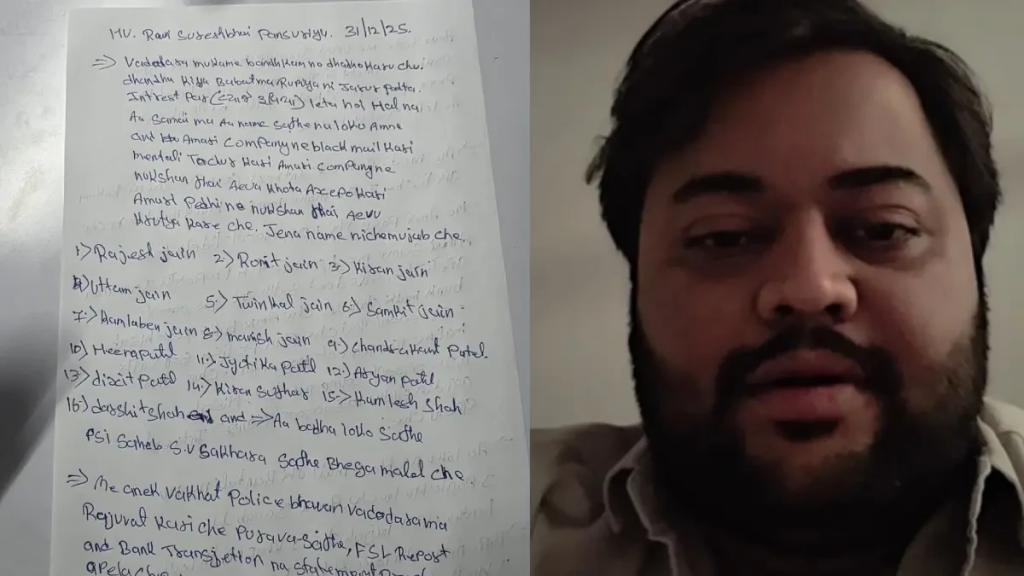 HU. Ravi Sureshbhai Pansuriya. 31/12/25.
=> Vadodara mu kame bandhkam no dhandho karu chu
dhandha kiya Babatma Rupiya ni Jarur padta
Intrest par leta hal Hal na
Aa samai mu Aa name sathe na loko Amne
and Amari Company ne black mail Kari
mentali Torchur Kari Amari Company ne
nukshan thai Aeva Khota Kari
Amari Pedhi ne nukshan thai Aevu
Krutya Kare che. Jena name niche mujab che.
1) Rajesh jain 2) Ronit jain 3) Kiran jain
4) Uttam jain 5) Twinkal jain 6) Samkit jain
7) Kamlaben jain 8) manish jain 9) Chandrakant Patel.
10) Heena patel 11) Jyotika Patel 12) Aryan patel
13) dixit Patel 14) Kiran Suthar 15) Kamlesh Shah
16) darshit shah and => Aa badha loko Sathe
PSI Saheb S.V Sakhara Sathe Bhega malel che.
=> Me anek vakhat Police bhavan Vadodara ma
Rajuvat Kari che Purava Sathe, FSL Report
and Bank na statement
apela che